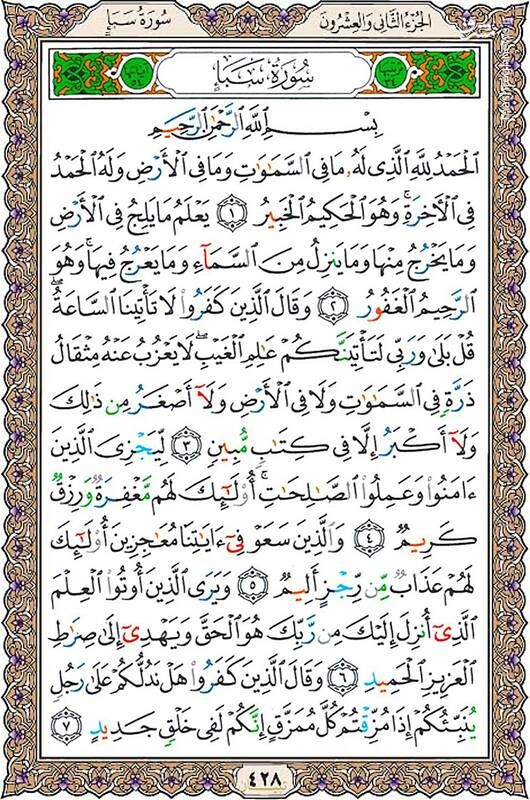 الجزء الثاني والعشرون
سورة سبأ
سُورَةُ سَبَإٍ
بِسْمِ ٱللَّهِ ٱلرَّحْمَٰنِ ٱلرَّحِيمِ
ٱلْحَمْدُ لِلَّهِ ٱلَّذِى لَهُۥ مَا فِى ٱلسَّمَٰوَٰتِ وَمَا فِى ٱلْأَرْضِ وَلَهُ ٱلْحَمْدُ
فِى ٱلْأَخِرَةِ ۚ وَهُوَ ٱلْحَكِيمُ ٱلْخَبِيرُ ١ يَعْلَمُ مَا يَلِجُ فِى ٱلْأَرْضِ
وَمَا يَخْرُجُ مِنْهَا وَمَا يَنزِلُ مِنَ ٱلسَّمَآءِ وَمَا يَعْرُجُ فِيهَا ۚ وَهُوَ
ٱلرَّحِيمُ ٱلْغَفُورُ ٢ وَقَالَ ٱلَّذِينَ كَفَرُوا۟ لَا تَأْتِينَا ٱلسَّاعَةُ ۖ
قُلْ بَلَىٰ وَرَبِّى لَتَأْتِيَنَّكُمْ عَٰلِمِ ٱلْغَيْبِ ۖ لَا يَعْزُبُ عَنْهُ مِثْقَالُ
ذَرَّةٍ فِى ٱلسَّمَٰوَٰتِ وَلَا فِى ٱلْأَرْضِ وَلَآ أَصْغَرُ مِن ذَٰلِكَ
وَلَآ أَكْبَرُ إِلَّا فِى كِتَٰبٍ مُّبِينٍ ٣ لِّيَجْزِىَ ٱلَّذِينَ
ءَامَنُوا۟ وَعَمِلُوا۟ ٱلصَّٰلِحَٰتِ ۚ أُو۟لَٰٓئِكَ لَهُم مَّغْفِرَةٌ وَرِزْقٌ
كَرِيمٌ ٤ وَٱلَّذِينَ سَعَوْ فِىٓ ءَايَٰتِنَا مُعَٰجِزِينَ أُو۟لَٰٓئِكَ
لَهُمْ عَذَابٌ مِّن رِّجْزٍ أَلِيمٌ ٥ وَيَرَى ٱلَّذِينَ أُوتُوا۟ ٱلْعِلْمَ
ٱلَّذِىٓ أُنزِلَ إِلَيْكَ مِن رَّبِّكَ هُوَ ٱلْحَقَّ وَيَهْدِىٓ إِلَىٰ صِرَٰطِ
ٱلْعَزِيزِ ٱلْحَمِيدِ ٦ وَقَالَ ٱلَّذِينَ كَفَرُوا۟ هَلْ نَدُلُّكُمْ عَلَىٰ رَجُلٍ
يُنَبِّئُكُمْ إِذَا مُزِّقْتُمْ كُلَّ مُمَزَّقٍ إِنَّكُمْ لَفِى خَلْقٍ جَدِيدٍ ٧
٤٢٨